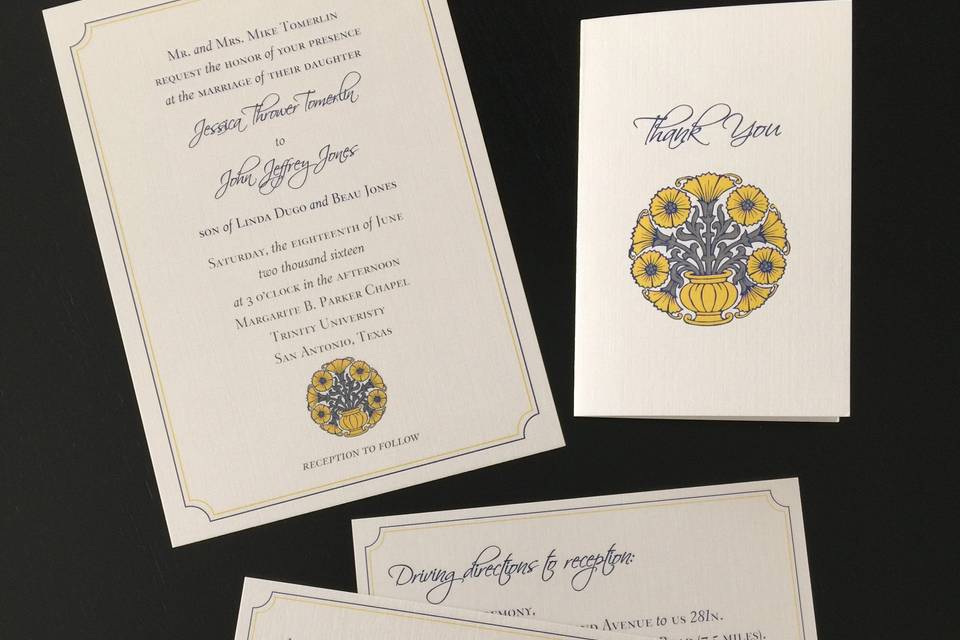 Mr. and Mrs. Mike Tomerlin
request the honor of your presence
at the marriage of their daughter
Jessica Thrower Tomerlin
to
John Jeffrey Jones
son of Linda Dugo and Beau Jones
Saturday, the eighteenth of June
two thousand sixteen
at 3 o'clock in the afternoon
Margarite B. Parker Chapel
Trinity Univeristy
San Antonio, Texas
reception to follow
Thank You
Driving directions to reception:
Avenue to us 281n.
(7.5 miles).